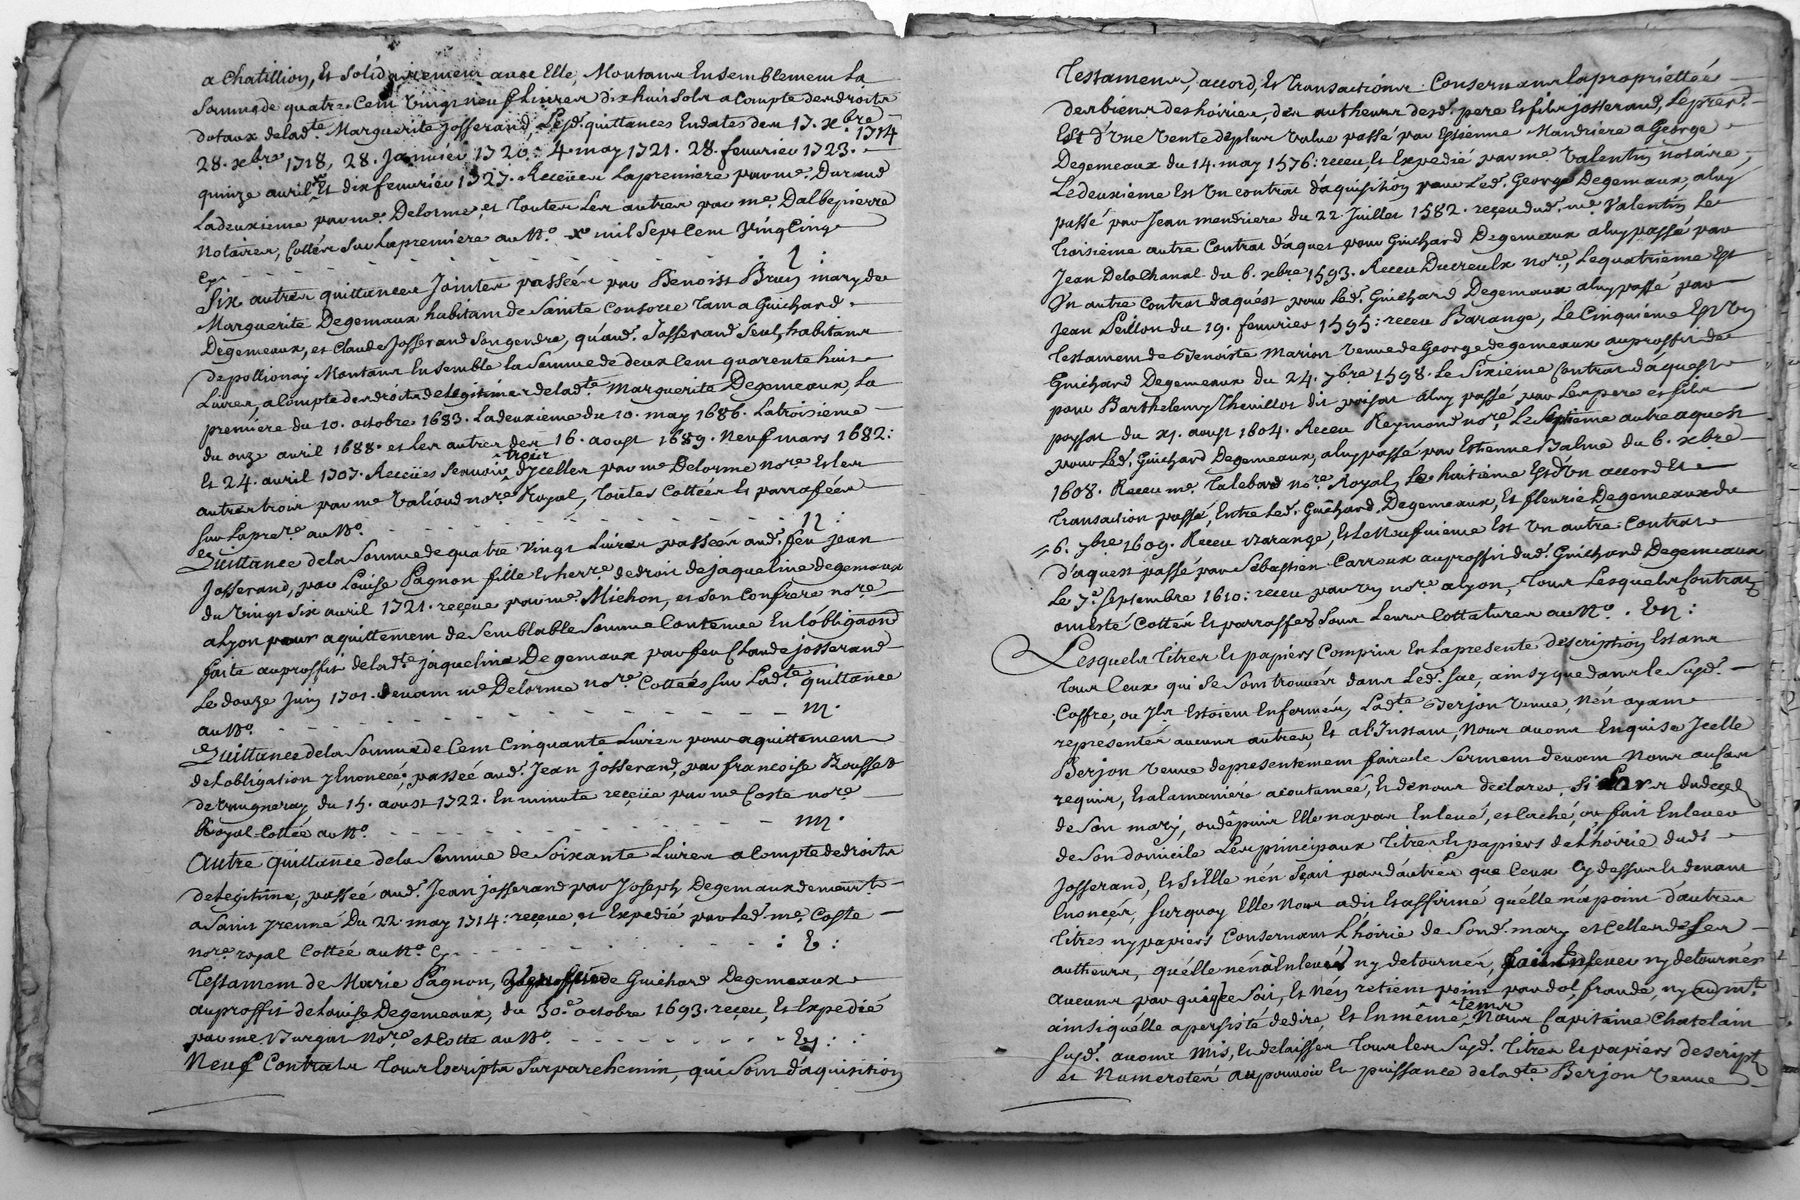 a Chatillion, Et Solidairement avec Elle, Montans Ensemblement La
Somme de quatre Cent Vingt neuf Livres dix huit Sols a Compte des droits
dotaux de lad.te Marguerite Josserand, Lesd. quittances En dates des 17. x.bre 1714
28. xbre 1718, 28. Janvier 1720. 4. may 1721. 28. fevrier 1723.
quinze avril Et dix fevrier 1727. Receües La premiere par me. Durand
La deuxieme par me. Delorme, et Toutes Les autres par me Dalbepierre
Notaires, Cottés Sur La premiere au No. mil Sept Cent Vingt Cinq
Six autres quittances Jointes passées par Benoist Brun mary de
Marguerite Degemaux habitant de Sainte Consorce Tant a Guichard
Degemeaux, et Claude Josserand Son gendre, qu'aud. Josserand Seul, habitans
de pollionay Montans Ensemble La Somme de deux Cent quarente huit
Livres, a Compte des droits de Legitimes de lad.te Marguerite Degemeaux, La
premiere du 10. octobre 1683. La deuxieme du 10. may 1686. La troisieme
du onze avril 1688. et Les autres des 16. aoust 1689. Neuf mars 1682:
Et 24. avril 1707. Receües Scavoir trois d'Ycelles par me Delorme no.re Et Les
autres trois par me Valioud no.re Royal, Toutes Cottées Et parrafées
Sur La pre.re au No.
Quittance de la Somme de quatre Vingt Livres passées aud. feu jean
Josserand, par Louise Pagnon fille Et herre. de droit de jaqueline degemaux
du Vingt Six avril 1721. reçeue par me. Michon, et Son Confrere no.re
a Lyon pour aquittement de Semblable Somme Contenue En L'obligaond
faite au proffit de lad.te Jaqueline Degemaux par feu Claude josserand
Le douze Juin 1701. devant me Delorme no.re Cottées Sur Lad.te quittance
au No.
Quittance de la Somme de Cent Cinquante Livres pour aquittement
de L'obligation y Enoncée, passeé aud. Jean Josserand, par francoise Rousset
de Vaugneray du 15. aoust 1722. En minute receüe par me Coste no.re
Royal Cottée au No.
Autre quittance de la Somme de Soixante Livres a Compte de droits
de Legitime, passeé aud. Jean josserand par Joseph Degemaux demeurt.
a Saint yrenné Du 22. may 1714: reçeue, et Expedié par Led. me Coste
no.re royal Cottée au No.
Testament de Marie Pagnon, de Guichard Degemeaux
au proffit de Louise Degemeaux, du 30e. octobre 1693. reçeu, Et Expedié
par me Burgat No.re et Cotte au No.
Neuf Contrats Tous Escripts Sur parchemin, qui Sont d'aquisition
Testamens, accord, Et Transactions Consernans La proprietteé
des biens des hoiries, des autheurs desd. pere Et fils josserand, Le pred.
Est d'Une Vente de plus Value passé par Estienne Mandriere a George
Degemeaux du 14. may 1576: receu, Et Expedié par me Valentin notaire,
Le deuxieme Est Un contrat d'aquisition pour Led. George Degemaux, a luy
passé par Jean mendriere du 22 Juillet 1582. reçeu dud. me. Valentin Le
Troisieme autre Contrat d'aquet pour Guichard Degemeaux a luy passé par
Jean De la Chanal du 6. xbre 1593. Receu Ducreulx no.re, Le quatrieme Est
Un autre Contrat d'aquest pour Led. Guichard Degemeaux a luy passé par
Jean Seillon du 19. fevrier 1595: receu Barange, Le Cinquieme Est Un
Testament de Benoiste Marion Veuve de George degemeaux au proffit de
Guichard Degemeaux du 24. 7bre 1598. Le Sixieme Contrat d'aquest
pour Barthelemy Thevillot dit poisat a luy passé par Les pere et fils
poysat du XI. aoust 1604. Receu Reymond no.re, Le Septieme autre aquest
pour Led. Guichard Degemeaux, a luy passé par Estienne Balme du 6. xbre
1608. Receu me. Talebard no.re Royal, Le huitieme Est d'Un accord Et
Transaction passé, Entre Led. Guichard Degemeaux, Et fleurie Degemeaux du
6. 7bre 1609. Receu Barange, Et Le Neufvieme Est Un autre Contrat
d'aquest passé par Sebastien Carroux au proffit dud. Guichard Degemeaux
Le 7e. Septembre 1610: receu par Un no.re a Lyon, Tous Lesquels Contrats
ont esté Cottés Et parraffés Sous Leurs Cottatures au No. VII:
Lesquels Titres Et papiers Compris En La presente description Estans
Tous Ceux qui Se Sont trouvés dans Led. Sac, ainsy que dans le Susd.
Coffre, ou Ils Estoient Enfermés, Lad.te Berjon Veuve, N'en ayant
representés aucuns autres, Et a L'Instant, Nous avons Enquise Icelle
Berjon Veuve de presentement faire le Serment devant Nous au Cas
requis, Et a la maniere acoutumée, Et de nous declarer, Si Lors du deced
de Son mary, ou depuis Elle n'a pas Enlevé, et Caché, ou fait Enlever
de Son domicile Les principaux Titres Et papiers de L'hoirie dudt
Josserand, Et Si Elle n'en Sçait pas d'autres que Ceux Cy dessus Et devant
Enoncés, Sur quoy Elle Nous a dit Et affirmé qu'elle n'a point d'autres
Titres ny papiers Consernans L'hoirie de Sond. mary et Celles de Ses
autheurs, qu'elle n'en a Enlevés ny detournés, fait Enlever ny detournés
aucuns par qui que ce Soit, Et N'en retient point par dol, fraude, ny autmt.
ainsi qu'elle a persisté de dire, Et En même tems Nous Capitaine Chatelain
Susd. avons mis, Et delaisser Tous Les Susd. Titres Et papiers descripts
et Numerotés au pouvoir Et puissance de lad.te Berjon Veuve